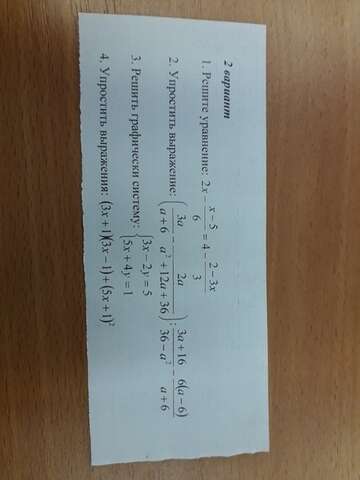 2 вариант
1. Решите уравнение: 2x − (x − 5)/6 = 4 − (2 − 3x)/3
2. Упростить выражение: (3a/(a + 6) − 2a/(a² + 12a + 36)) : (3a + 16)/(36 − a²) − 6(a − 6)/(a + 6)
3. Решить графически систему: {3x − 2y = 5
{5x + 4y = 1
4. Упростить выражения: (3x + 1)(3x − 1) + (5x + 1)²